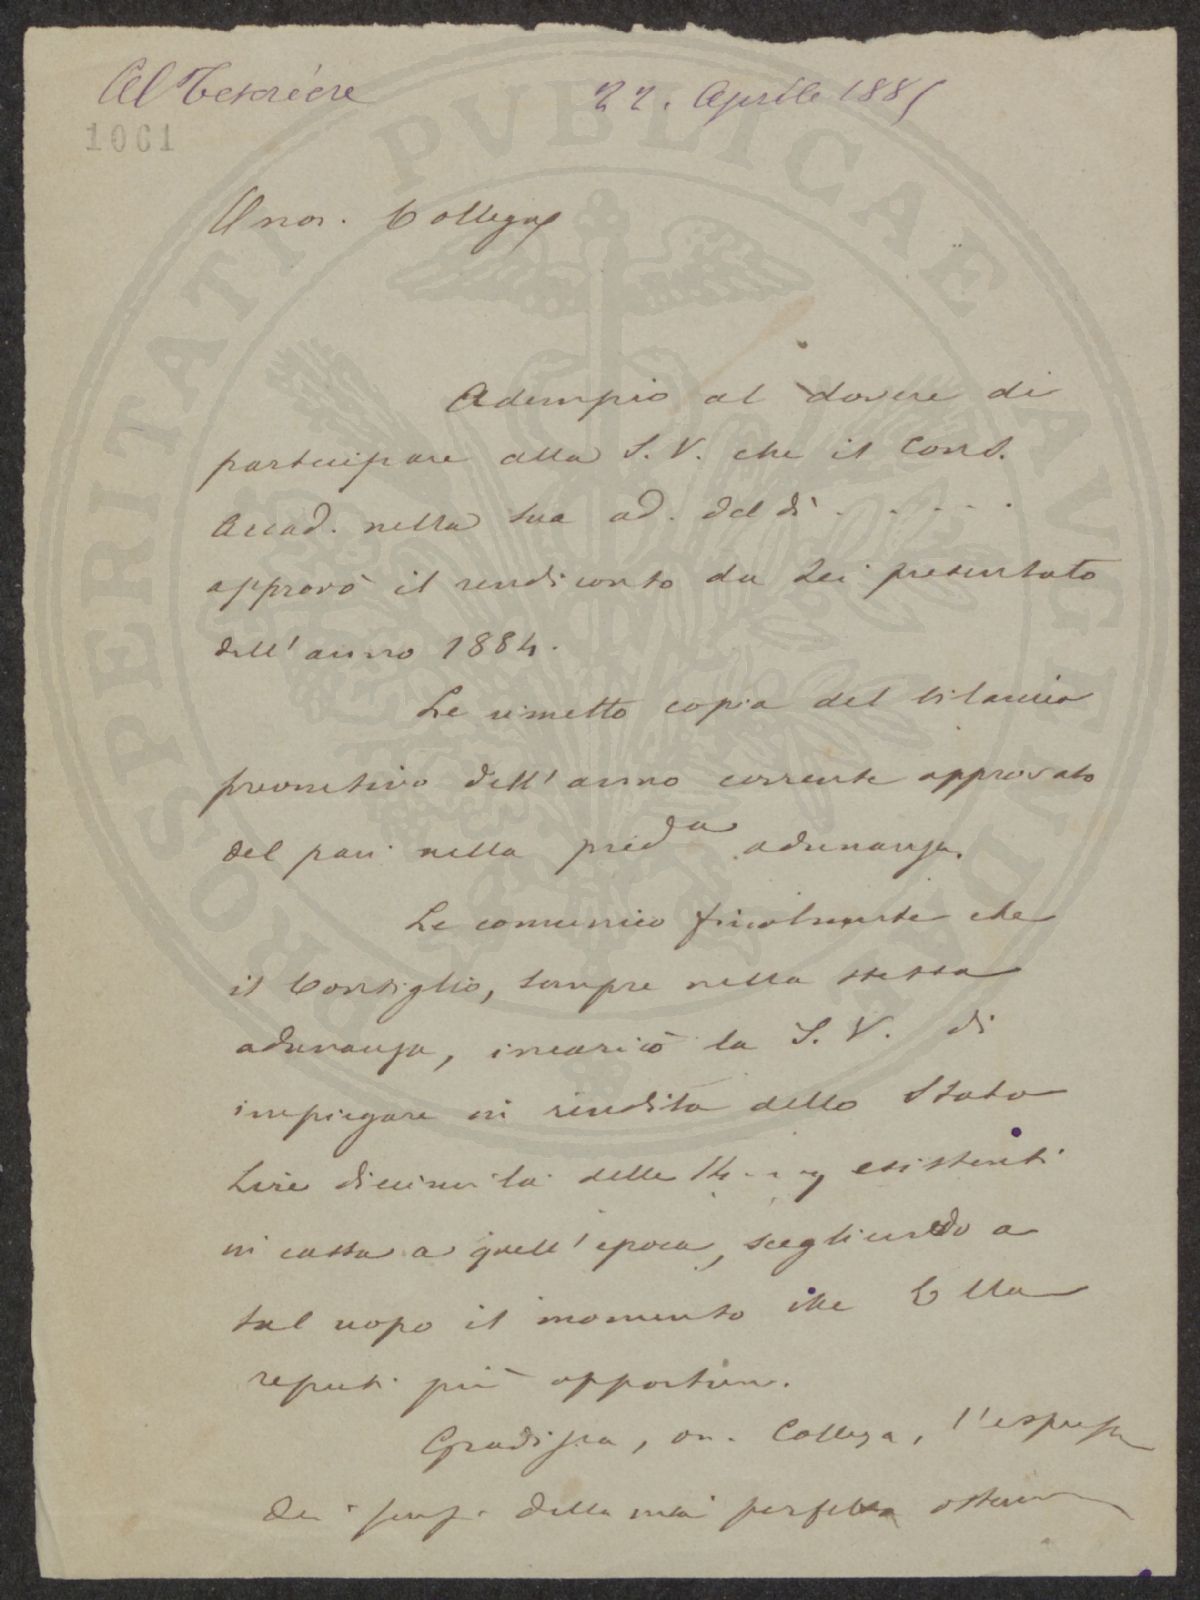 Al Tesoriere
22. Aprile 1885
1061
Onor. Collega
Adempio al dovere di
partecipare alla S. V. che il Cons.
Accad. nella sua ad. del dì . . . . .
approvò il rendiconto da Lei presentato
dell'anno 1884.
Le rimetto copia del bilancio
preventivo dell'anno corrente approvato
del pari nella predª adunanza.
Le comunico finalmente che
il Consiglio, sempre nella stessa
adunanza, incaricò la S. V. di
impiegare in rendita dello Stato
Lire diecimila delle 14 esistenti
in cassa a quell'epoca, scegliendo a
tal uopo il momento che Ella
reputi più opportuno.
Gradisca, on. Collega, l'espress
dei sensi della mia perfetta osservan
PROSPERITATI PVBLICAE AVGENDAE